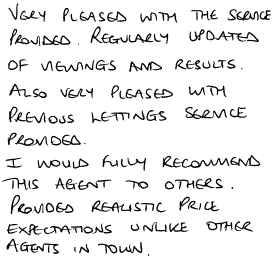 VERY PLEASED WITH THE SERVICE
PROVIDED. REGULARLY UPDATED
OF VIEWINGS AND RESULTS.
ALSO VERY PLEASED WITH
PREVIOUS LETTINGS SERVICE
PROVIDED.
I WOULD FULLY RECOMMEND
THIS AGENT TO OTHERS.
PROVIDED REALISTIC PRICE
EXPECTATIONS UNLIKE OTHER
AGENTS IN TOWN.